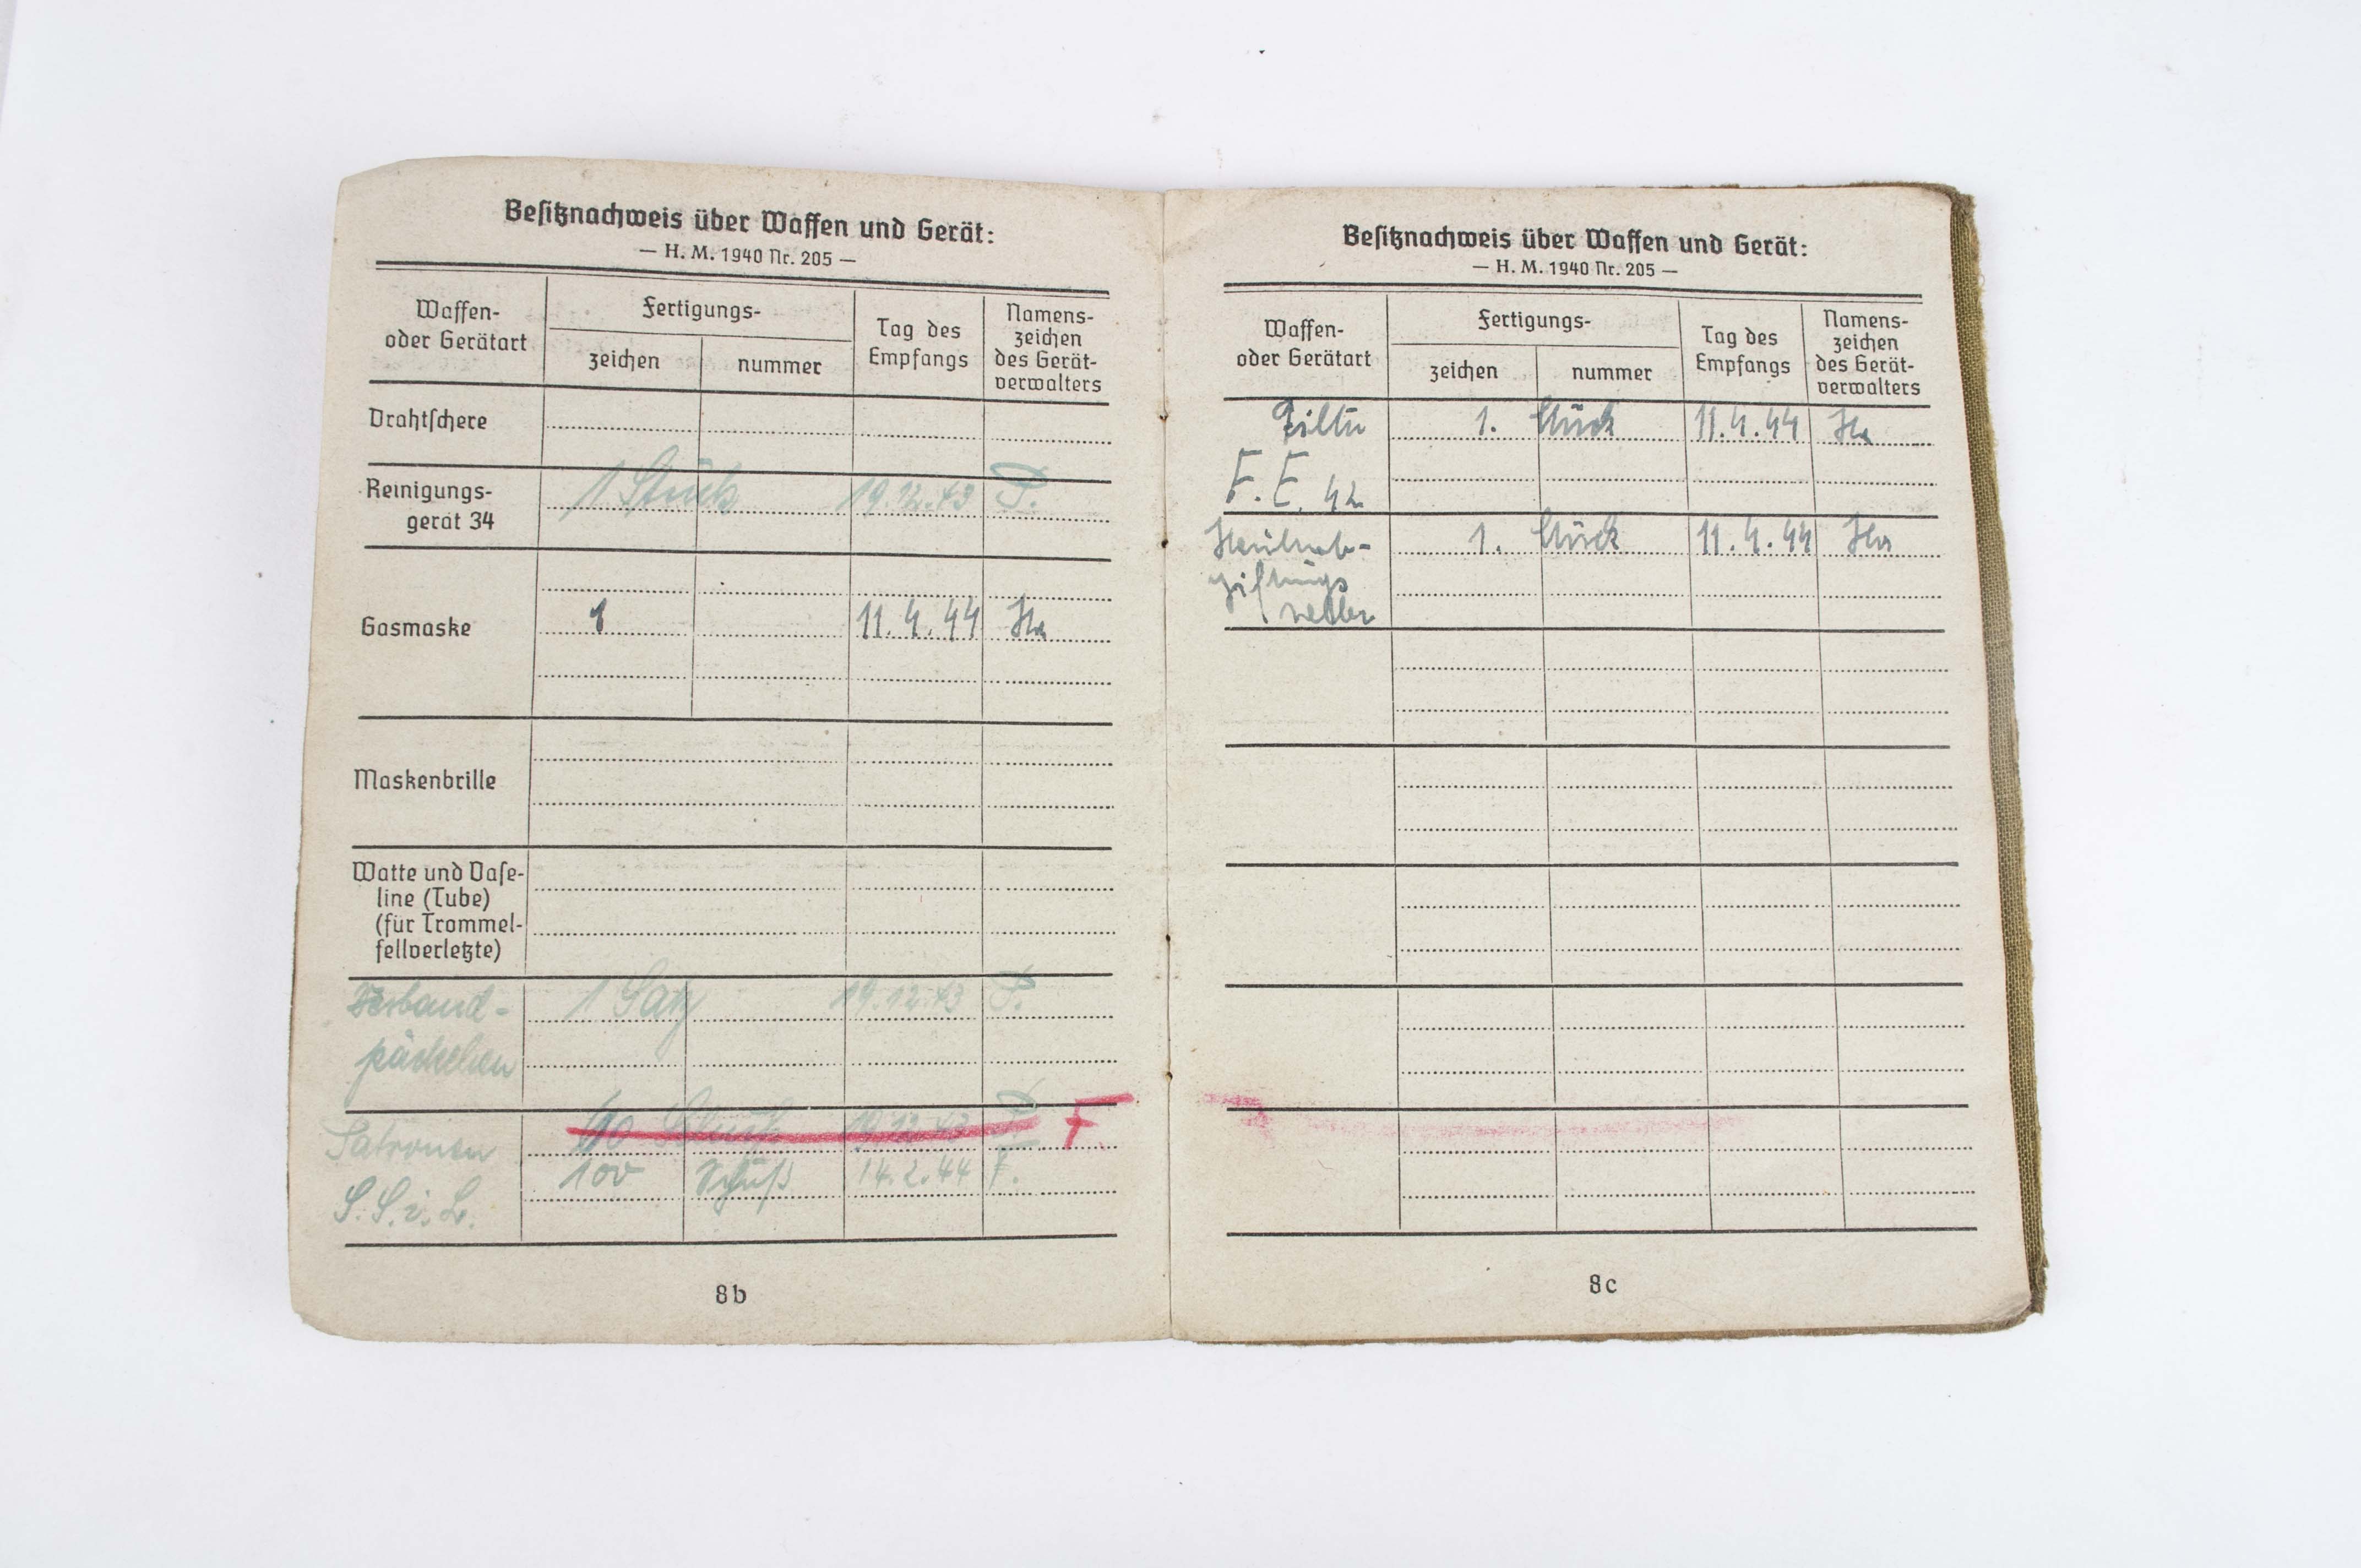 Besitznachweis über Waffen und Gerät:
— H. M. 1940 Nr. 205 —
Waffen-
oder Gerätart
Fertigungs-
zeichen
nummer
Tag des
Empfangs
Namens-
zeichen
des Gerät-
verwalters
Drahtschere
Reinigungs-
gerät 34
1 Stück 19.12.43 P.
Gasmaske
1 11.4.44 Ha
Maskenbrille
Watte und Vase-
line (Tube)
(für Trommel-
fellverletzte)
Verband-
päckchen
1 Satz 19.12.43 P.
Patronen
S.S.i.L.
60 Stück 19.12.43 P. F.
100 Schuß 14.2.44 F.
8b
Besitznachweis über Waffen und Gerät:
— H. M. 1940 Nr. 205 —
Waffen-
oder Gerätart
Fertigungs-
zeichen
nummer
Tag des
Empfangs
Namens-
zeichen
des Gerät-
verwalters
Filter
F.E. 42
1. Stück 11.4.44 Ha
1. Stück 11.4.44 Ha
8c